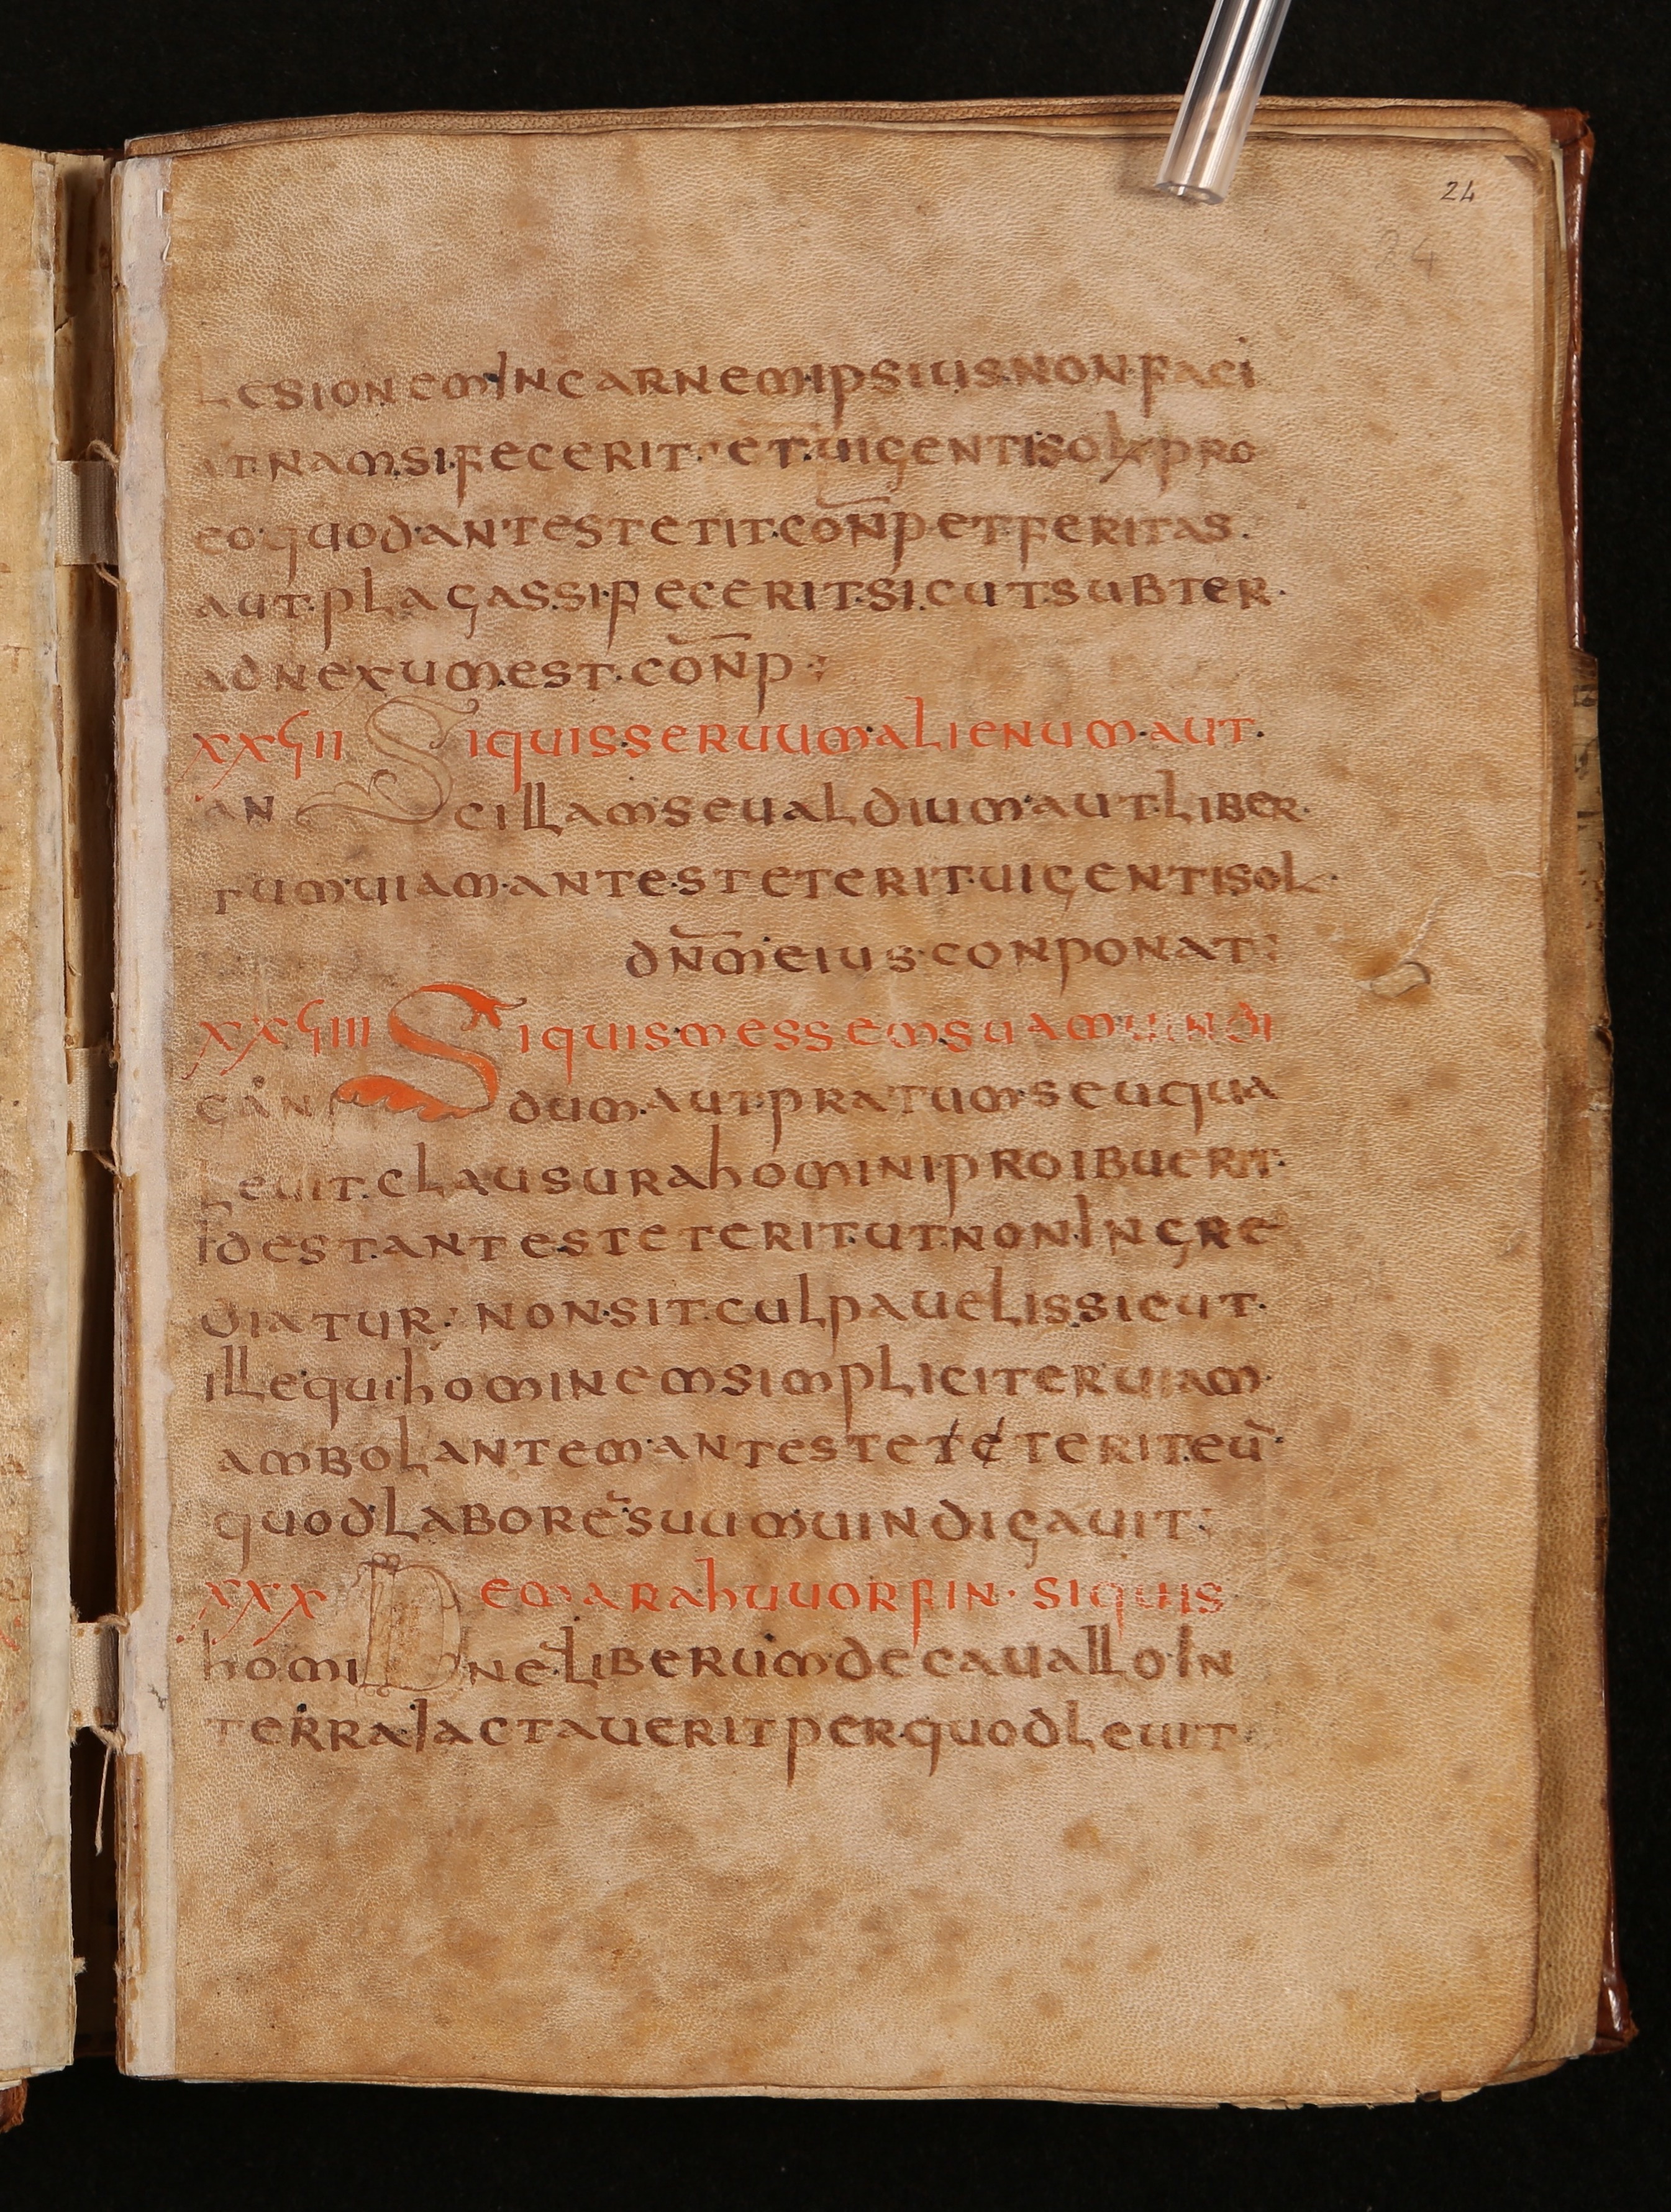 24
24
LESIONEM·IN CARNEM·IPSIUS·NON·FACI
AT·NAM·SI·FECERIT·ET·UIGENTI SOL PRO
EO·QUOD·ANTESTETIT·CON̄P·ET·FERITAS·
AUT·PLAGAS·SI·FECERIT·SICUT·SUBTER·
ADNEXUM·EST·CON̄P:
XXϛII SI QUIS SERUUM·ALIENUM·AUT·
AN CILLAM·SEU ALDIUM·AUT·LIBER·
TUM·UIAM·ANTESTETERIT·UIGENTI SOL·
DN̄OI EIUS·CONPONAT:
XXϛIII SI QUIS MESSEM SUAM UINDI
CAN DUM·AUT·PRATUM·SEU QUA
LEUIT·CLAUSURA HOMINI PROIBUERIT·
IDEST·ANTESTETERIT·UT·NON INGRE
DIATUR· NON·SIT·CULPAUELIS SICUT·
ILLE·QUI·HOMINEM SIMPLICITER·UIAM·
AMBOLANTEM·ANTESTETETERIT·EŪ·
QUOD LABORE SUUM·UINDIGAUIT:
XXX DE MARAHUUORFIN· SI QUIS
HOMI NE LIBERUM·DE CAUALLO·IN
TERRA IACTAUERIT PER·QUOD LEUIT·